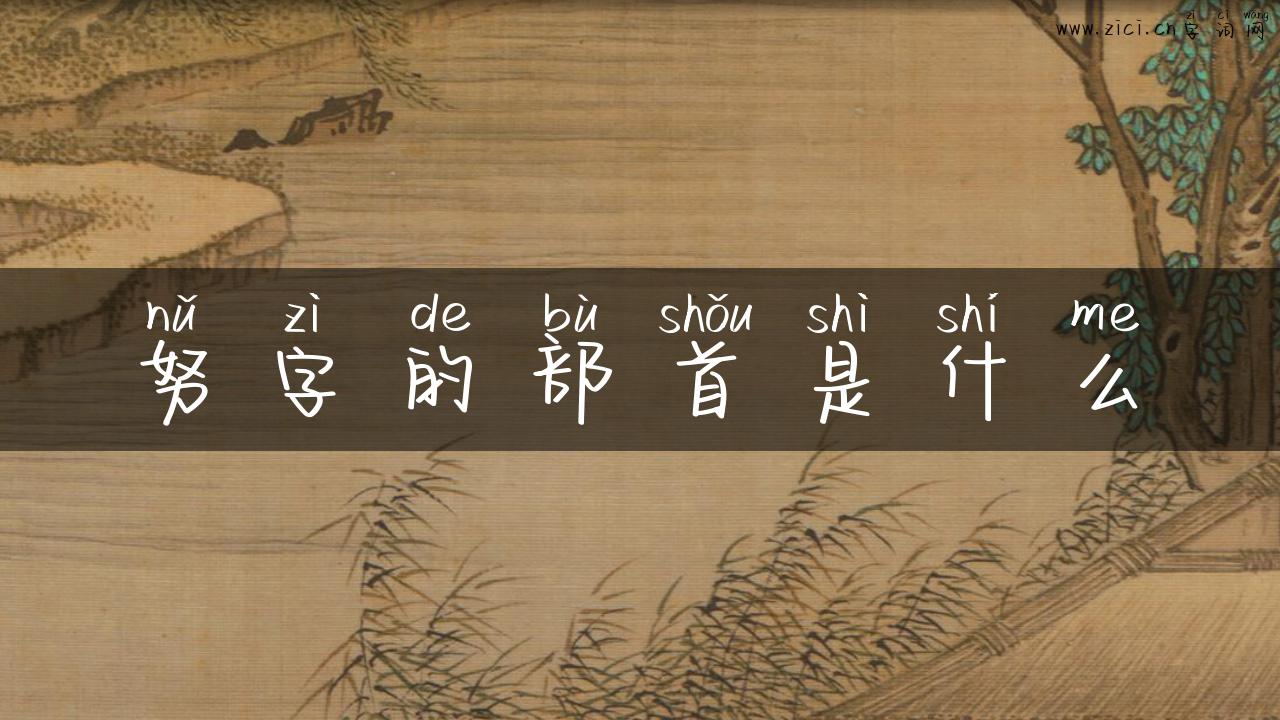 zì cí wǎng
www.zici.cn字词网
nǔ zì de bù shǒu shì shí me
努字的部首是什么